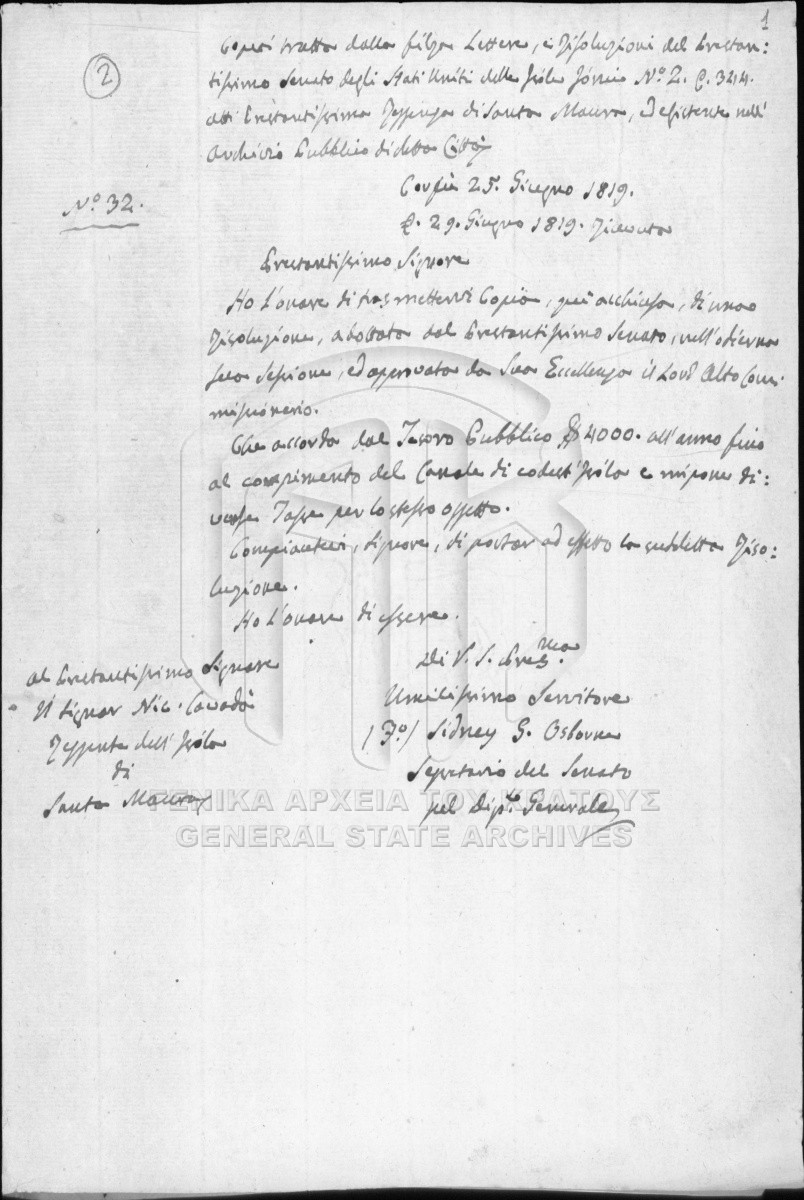 1
2
Copia tratta dalla filza Lettere, e Risoluzioni del Prestan:
tissimo Senato degli Stati Uniti delle Isole Jonie No. 2. C. 3244.
atti Prestantissima Reggenza di Santa Maura, ed esistente nell'
Archivio Pubblico di detta Città
No. 32.
Corfù 25. Giugno 1819.
29. Giugno 1819. Ricevuta
Prestantissimo Signore
Ho l'onore di trasmettervi Copia, qui acchiusa, di una
Risoluzione, adottata dal Prestantissimo Senato, nell'odierna
sua Sessione, ed approvata da Sua Eccellenza il Lord Alto Com:
missionario.
Che accorda dal Tesoro Pubblico 4000. all'anno fino
al compimento del Canale di codest'Isola e impone di:
verse Tasse per lo stesso oggetto.
Compiacetevi, Signore, di portar ad effetto la suddetta Riso:
luzione.
Ho l'onore di essere.
Di V. S. Presma.
Umilissimo Servitore
(Fo.) Sidney G. Osborne
Segretario del Senato
pel Dipo. Generale
al Prestantissimo Signore
Il Signor Nic. Cavadà
Reggente dell'Isola
di
Santa Maura
ΓΕΝΙΚΑ ΑΡΧΕΙΑ ΤΟΥ ΚΡΑΤΟΥΣ
GENERAL STATE ARCHIVES